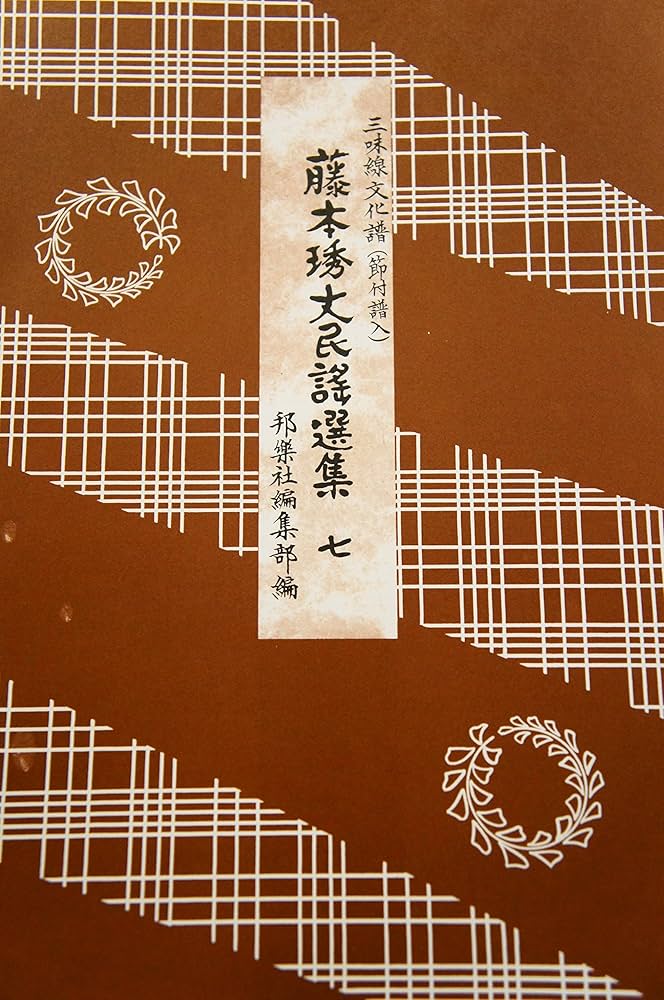 三味線文化譜(節付譜入)
藤本琇丈民謠選集 七
邦樂社編集部編